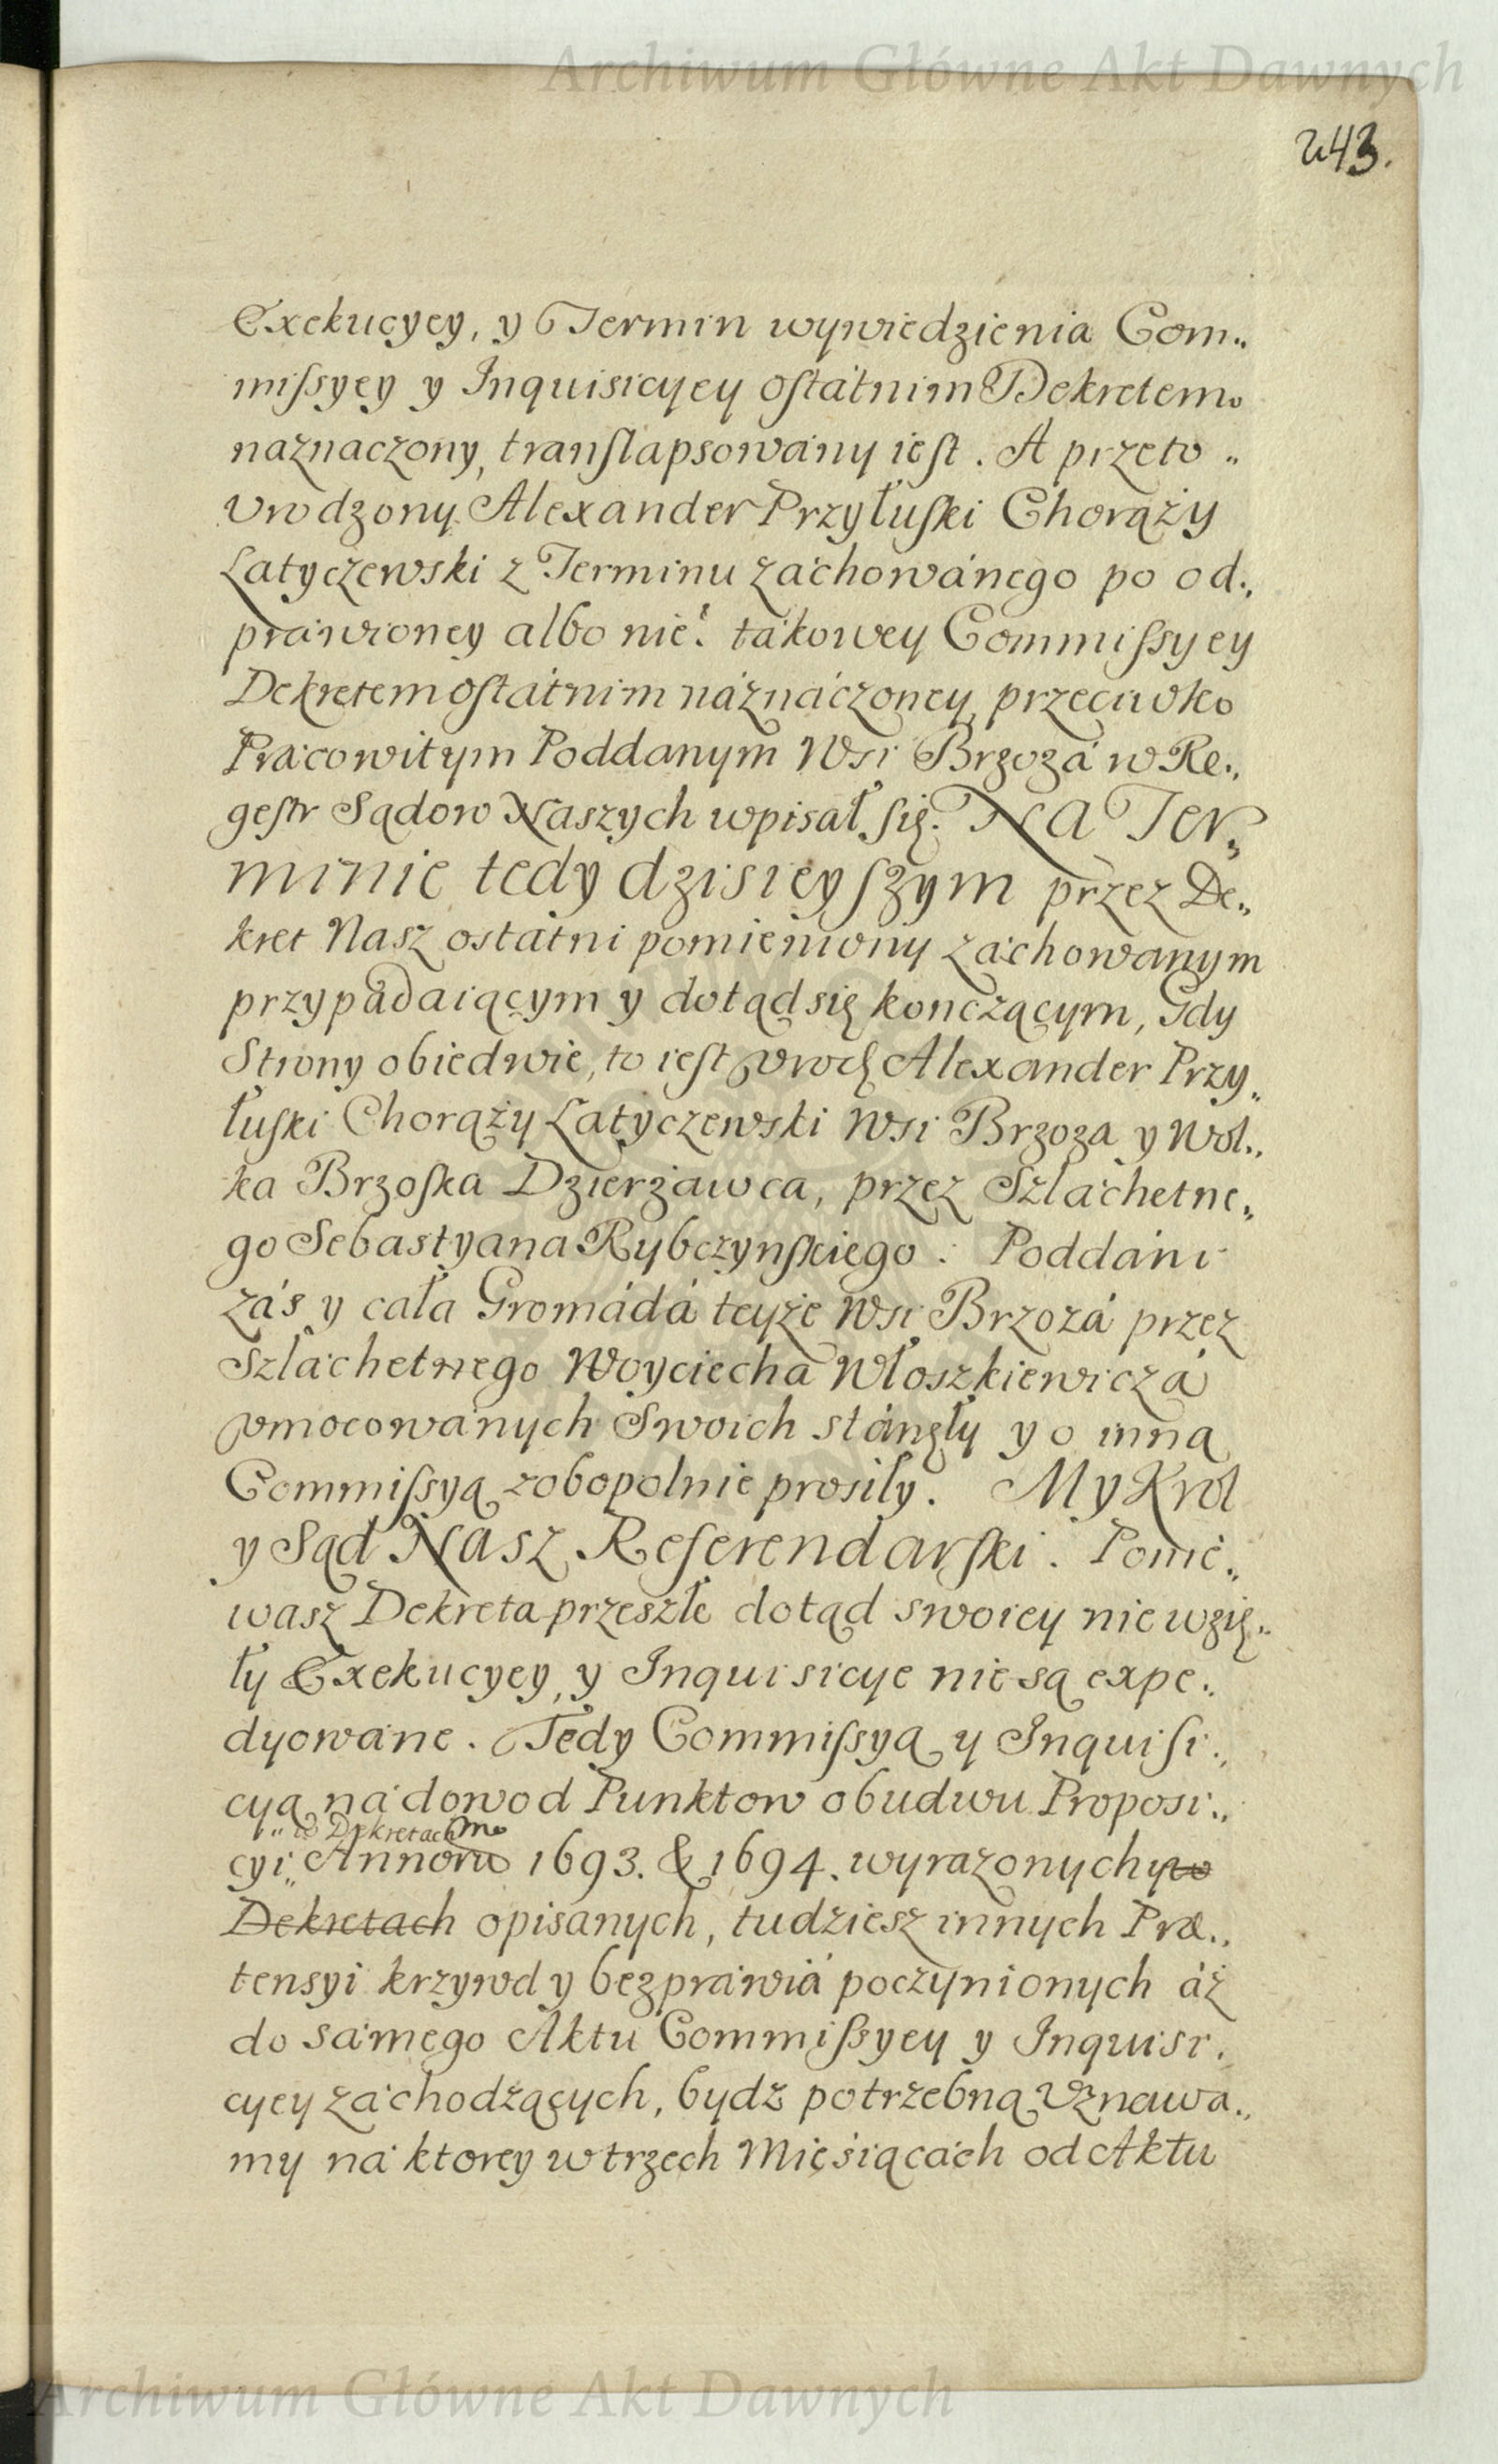 Archiwum Główne Akt Dawnych
243.
Exekucyey, y Termin wywiedzienia Com„
miſsyey y Inquisicyey oſtátnim Dekretem
náznaczony, tranſlapsowány ieſt. A przeto „
Vrodzony Alexander Przyłuſki Chorąży
Latyczewski z Terminu záchowánego po od„
práwioney álbo nie tákowey Commiſsyey
Dekretem oſtátnim náználczoney przeciwko
Prácowitym Poddanym Wsi Brzozá w Re„
geſtr Sądow Naszych wpisał ſię. Na Ter„
minie tedy dzisieyſzym przez De„
kret Nasz ostátni pomieniony záchowanym
przypádaiącym y dotąd się kończącym, Gdy
Strony obiedwie, to ieſt Vrodz Alexander Przy„
łuſki Chorąży Latyczewski Wsi Brzoza y Wol„
ka Brzoſka Dzierżawca, przez Szláchetne„
go Sebastyana Rybczynſkiego. Poddáni
zás y cała Gromádá teyże Wsi Brzozá przez
Szláchetnego Woyciecha Włoszkiewiczá
vmocowánych Swoich stánęły y o inną
Commiſsyą zobopolnie prosiły. My Krol
y Sąd Nasz Referendarſki. Ponie„
wasz Dekreta przeszłe dotąd swoiey nie wzię„
ły Exekucyey, y Inquisicye nie są expe„
dyowáne. Tedy Commiſsyą y Inquiſi„
cyą ná dowod Punktow obudwu Proposi„
w Dekretach
cyi Annorum 1693. & 1694. wyrazonych y w
Dekretach opisanych, tudziesz innych Præ„
tensyi krzywd y bezpráwiá poczynionych áż
do sámego Aktu Commiſsyey y Inquisi„
cyey záchodzących, bydz potrzebną Vznawa„
my ná ktorey w trzech Mieśiącách od Aktu
Archiwum Główne Akt Dawnych